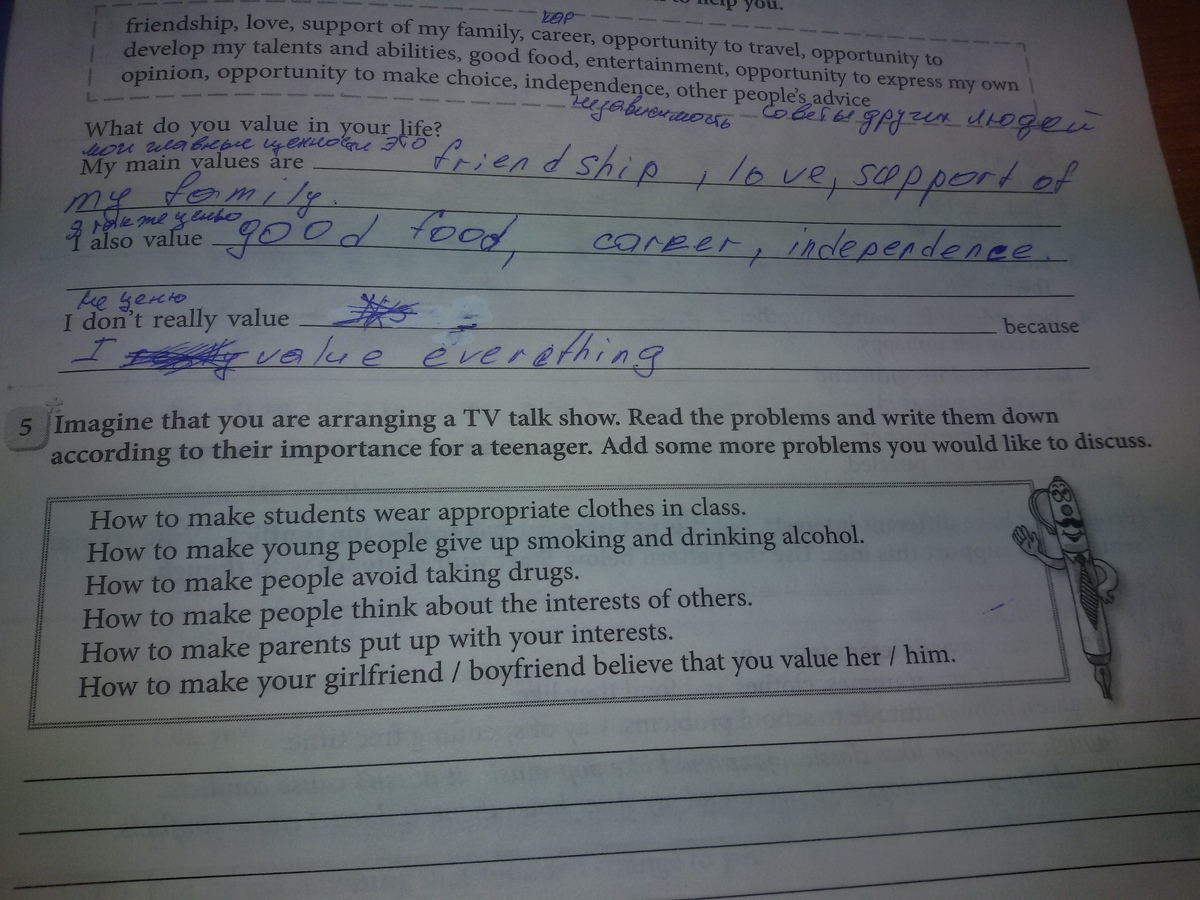 help you.
кар
friendship, love, support of my family, career, opportunity to travel, opportunity to
develop my talents and abilities, good food, entertainment, opportunity to express my own
opinion, opportunity to make choice, independence, other people's advice
независимость советы других людей
What do you value in your life?
мои главные ценности это
My main values are friendship, love, support of
my family.
я также ценю
I also value good food, career, independence.
не ценю
I don't really value - because
I value everething
5 Imagine that you are arranging a TV talk show. Read the problems and write them down
according to their importance for a teenager. Add some more problems you would like to discuss.
How to make students wear appropriate clothes in class.
How to make young people give up smoking and drinking alcohol.
How to make people avoid taking drugs.
How to make people think about the interests of others.
How to make parents put up with your interests.
How to make your girlfriend / boyfriend believe that you value her / him.